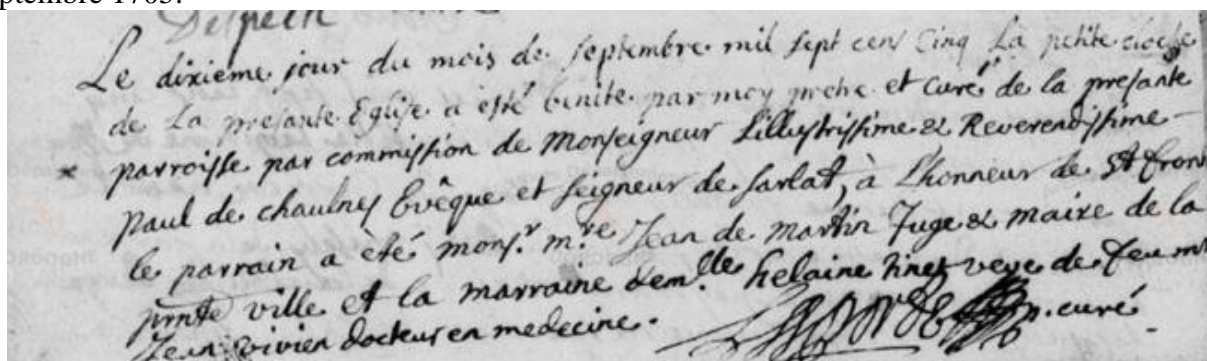 ptembre 1705.
Delpech
Le dixieme jour du mois de septembre mil sept cens Cinq La petite cloche
de La presante Eglise a esté benite par moy pretre et curé de la presante
parroisse par commission de Monseigneur Lillustrissime & Reverendissime
paul de chaulnes Evêque et seigneur de sarlat, à L'honneur de St front
le parrain a èté mons.r m.re Jean de martin Juge & maire de la
prnte ville et la marraine dem.lle helaine veve de feu mr
Jean vivien docteur en medecine.
curé